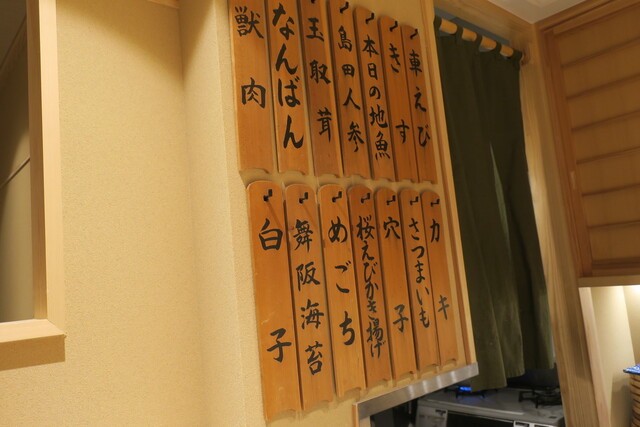 車えび
きす
本日の地魚
島田人参
玉取茸
なんばん
獣肉
カキ
さつまいも
穴子
桜えびかき揚げ
めごち
舞阪海苔
白子